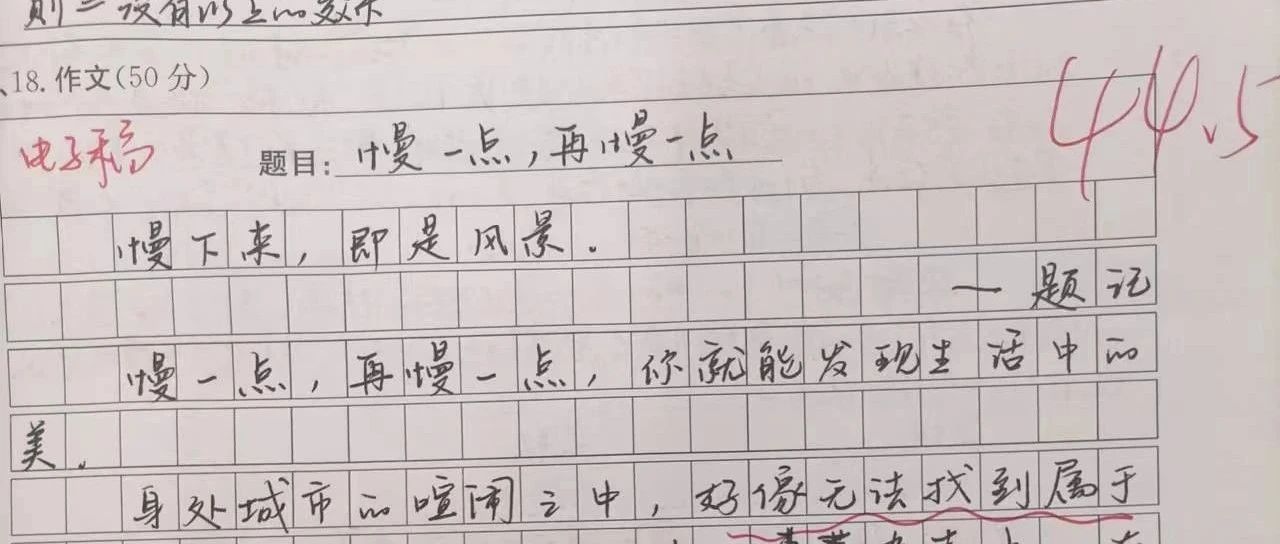 则一没有以上的效果
18.作文(50分)
44.5
电子稿
题目:慢一点,再慢一点
慢下来,即是风景.
一题记
慢一点,再慢一点,你就能发现生活中的
美.
身处城市的喧闹之中,好像无法找到属于